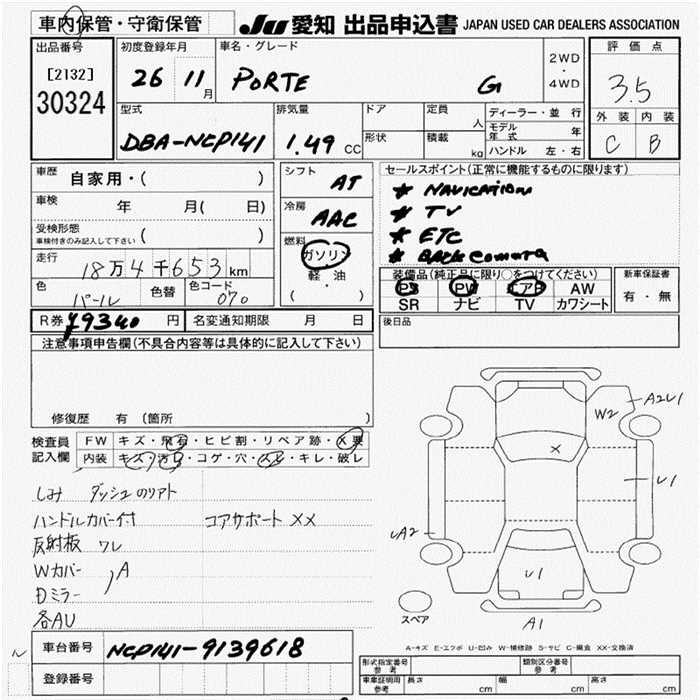 車内保管・守衛保管
JU 愛知 出品申込書 JAPAN USED CAR DEALERS ASSOCIATION
出品番号
[2132]
30324
初度登録年月
26 11 月
車名・グレード
PORTE G
2WD
・
4WD
評価点
3.5
外装 内装
C B
型式
DBA-NCP141
排気量
1.49 CC
ドア
形状
定員 人
積載 kg
ディーラー・並行
モデル年式 年
ハンドル 左・右
車歴 自家用・( )
車検 年 月( 日)
受検形態
車検付きのみ記入して下さい ( )
走行 18万4千653km
色 パール 色替 色コード 070
シフト AT
冷房 AAC
燃料
ガソリン
軽・油
( )
セールスポイント(正常に機能するものに限ります)
* NAVICATION
* TV
* ETC
* BACK camera
装備品(純正品に限り○をつけてください)
PS PW エアB AW
SR ナビ TV カワシート
新車保証書
有・無
R券 ¥9340 円 名変通知期限 月 日
後日品
注意事項申告欄(不具合内容等は具体的に記入して下さい)
修復歴 有 (箇所 )
検査員記入欄
FW キズ・飛石・ヒビ割・リペア跡・X要
内装 キズ・汚れ・コゲ・穴・スレ・キレ・破レ
シミ ダッシュのリアト
ハンドルカバー付 コアサポート XX
反射板 ワレ
Wカバー
Dミラー ) A
各AU
A2U1
W2
X
U1
UA2
U1
スペア
A1
A-キズ E-エクボ U-凹み W-補修跡 S-サビ C-腐食 XX-交換済
車台番号 NCP141-9139618
登録番号
形式指定番号 参考
類別区分番号 参考
車庫証明用 参考 長さ cm 幅 cm 高さ cm